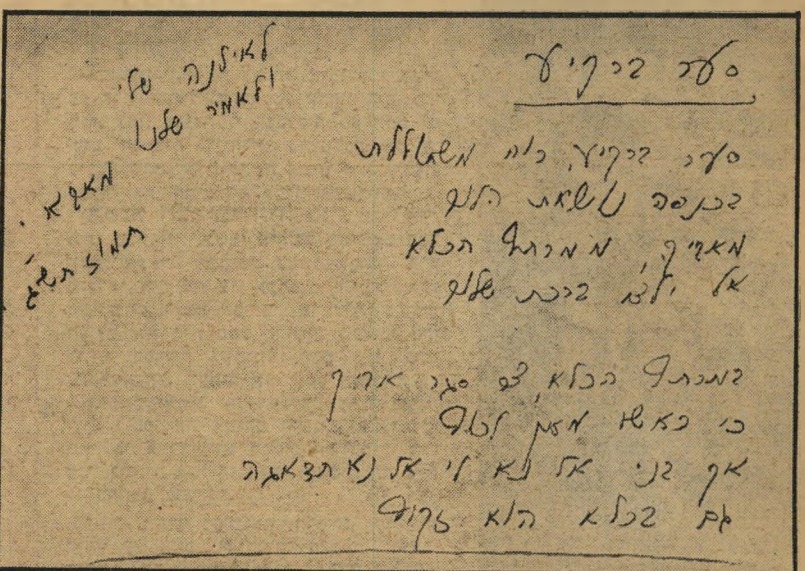 סער ברקיע
סער ברקיע, רוח משתוללת
בכנפה נושאת הלום
מאריק, ממרתף הכלא
אל ילדו ברכת שלום
במרתף הכלא, צר סגר אריק
כי ראשו מאן לכוף
אך בני אל נא לי אל נא תדאגה
גם בכלא הוא זקוף
לאילנה שלי
ולאמיר שלנו
מאבא.
תמוז תש"ג